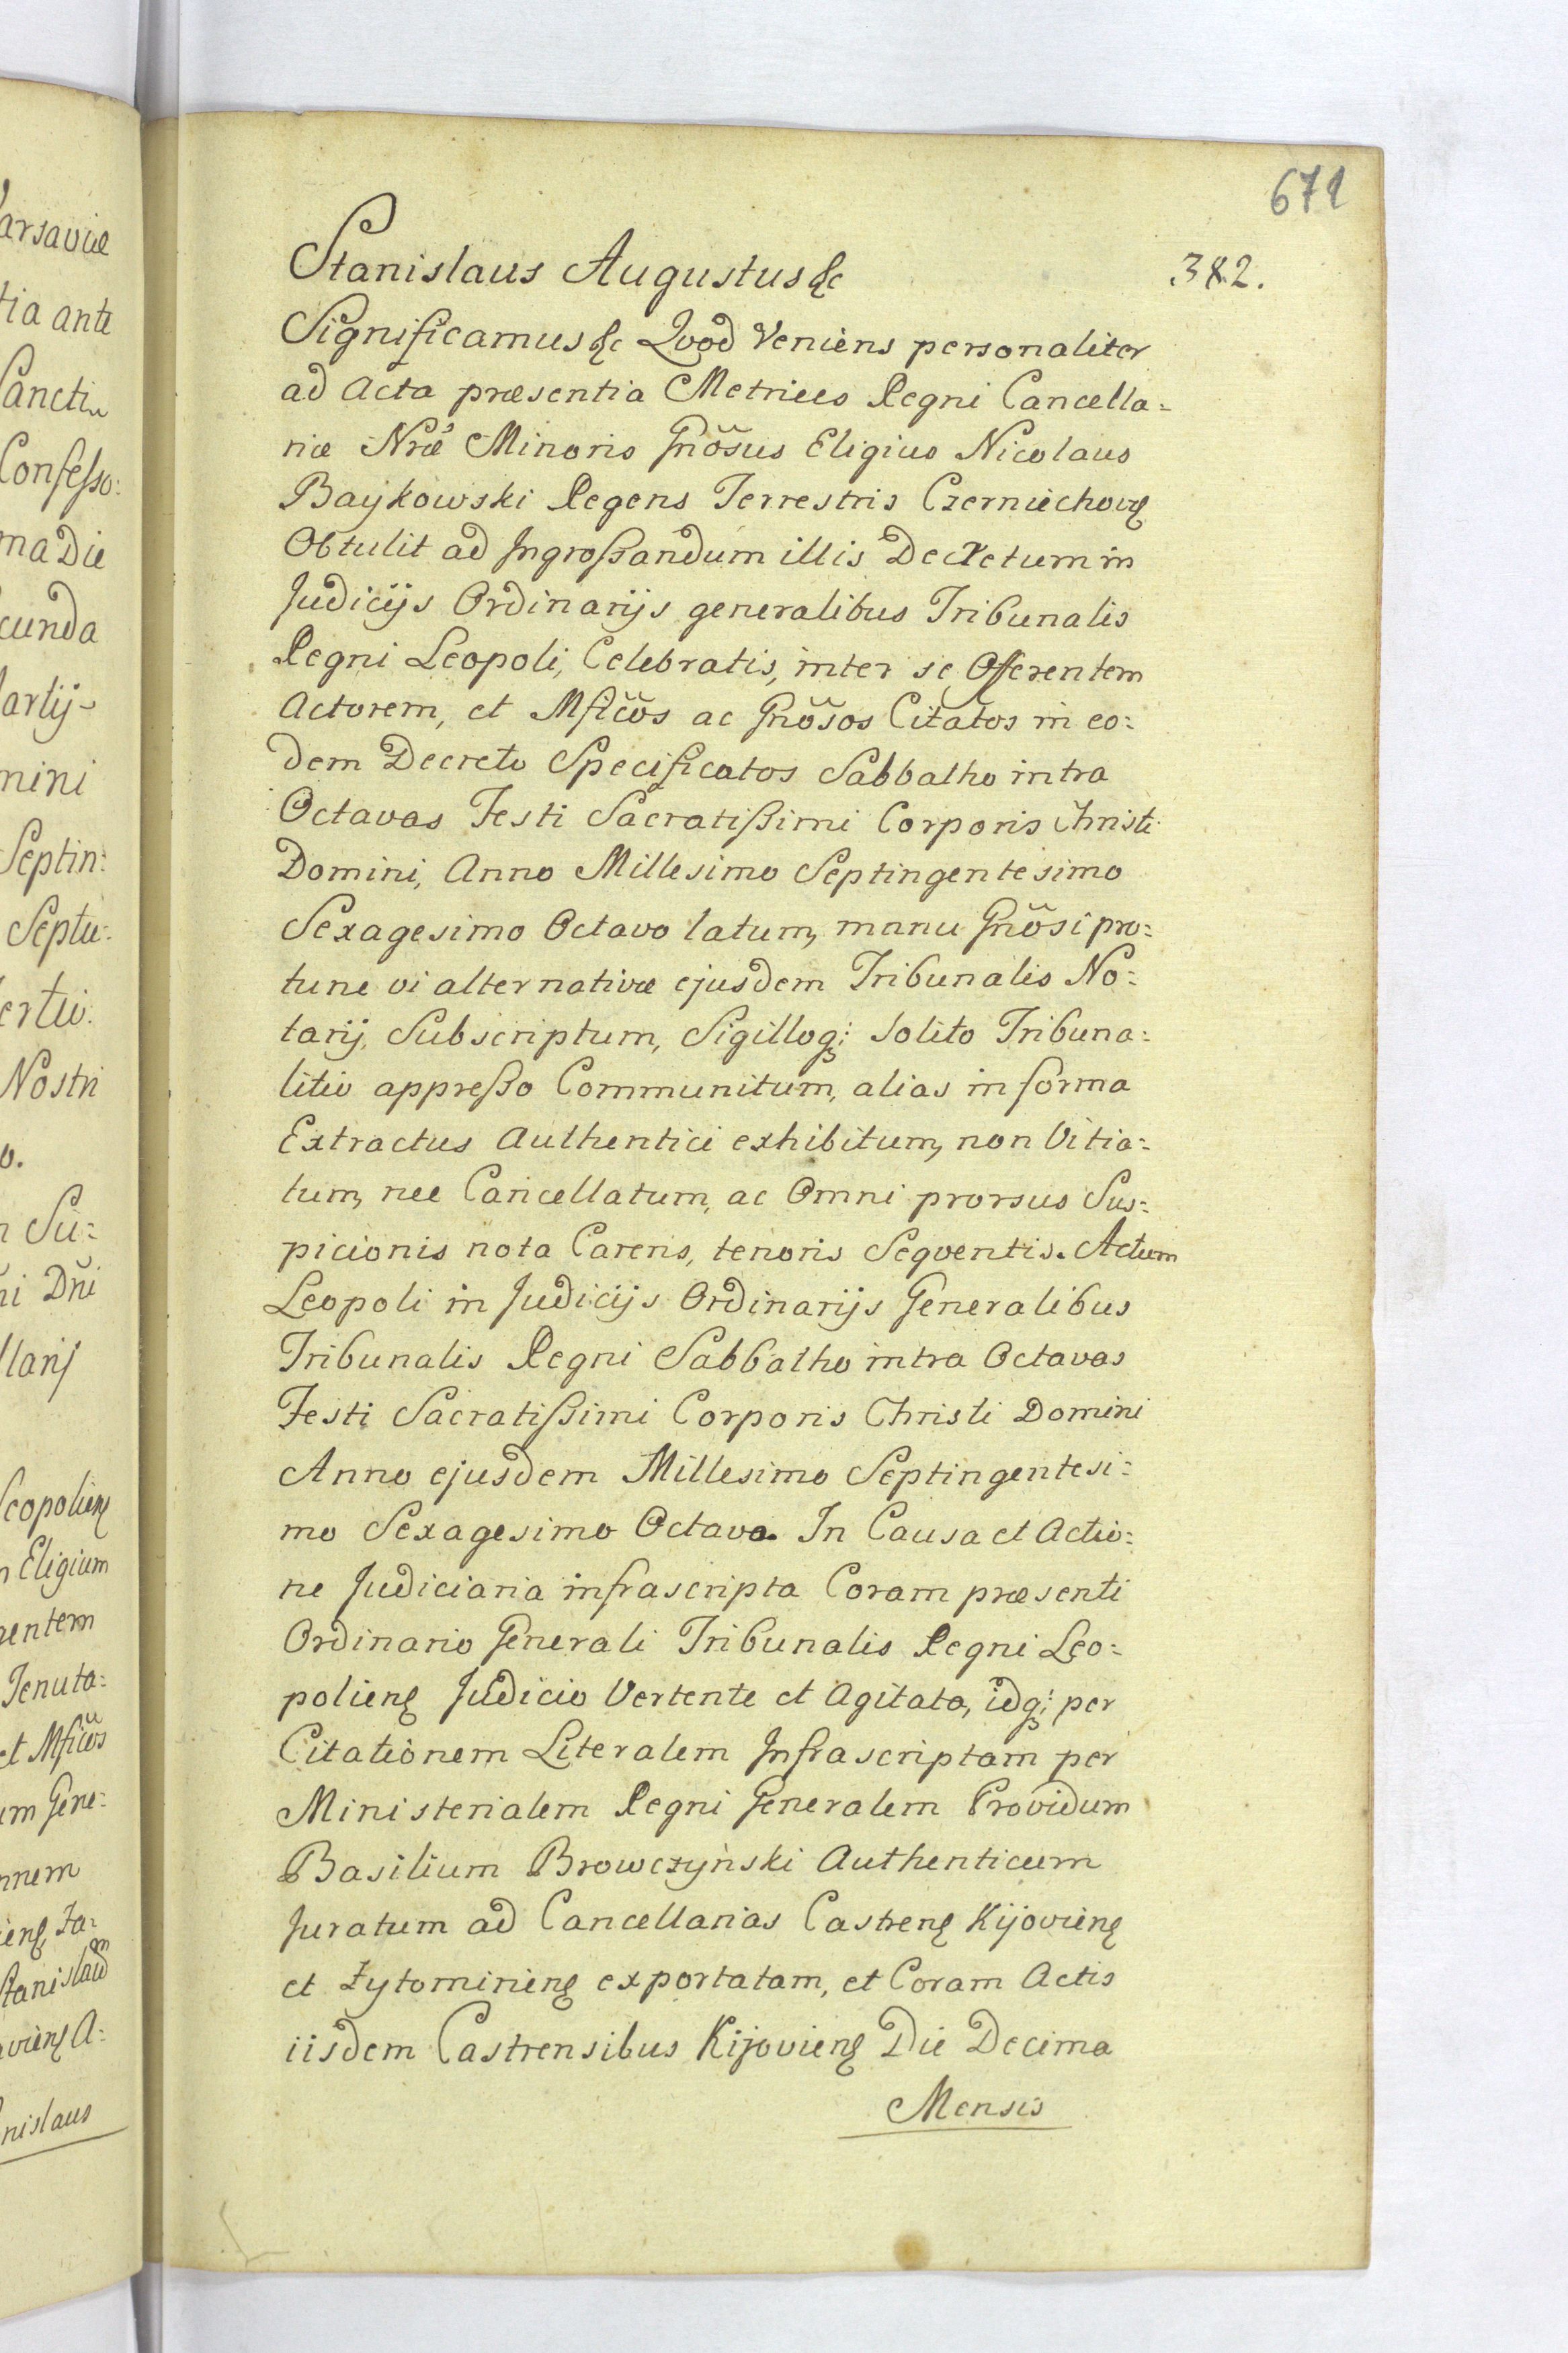 671
382.
Stanislaus Augustus &c
Significamus &c Qvod Veniens personaliter
ad Acta præsentia Metrices Regni Cancella=
riæ Nræ Minoris Gnõsus Eligius Nicolaus
Baykowski Regens Terrestris Czerniechov̄
Obtulit ad Ingroßandum illis Decretum in
Judicijs Ordinarijs generalibus Tribunalis
Regni Leopoli, Celebratis, inter se Offerentem
Actorem, et Mficõs ac Gnõsos Citatos in eo:
dem Decreto Specificatos Sabbatho intra
Octavas Festi Sacratißimi Corporis Christi
Domini, Anno Millesimo Septingentesimo
Sexagesimo Octavo latum, manu Gnõsi pro:
tunc vi alternativæ ejusdem Tribunalis No:
tarij, Subscriptum, Sigilloq; solito Tribuna:
litio appreßo Communitum, alias in forma
Extractus Authentici exhibitum, non Vitia:
tum, nec Cancellatum, ac Omni prorsus Sus:
picionis nota Carens, tenoris Seqventis. Actum
Leopoli in Judicijs Ordinarijs Generalibus
Tribunalis Regni Sabbatho intra Octavas
Festi Sacratißimi Corporis Christi Domini
Anno ejusdem Millesimo Septingentesi:
mo Sexagesimo Octavo. In Causa et Actio:
ne Judiciaria infrascripta Coram præsenti
Ordinario Generali Tribunalis Regni Leo:
polien̄ Judicio Vertente et Agitata, idq; per
Citationem Literalem Infrascriptam per
Ministerialem Regni Generalem Providum
Basilium Browczyński Authenticum
Juratum ad Cancellarias Castren̄ Kijovien̄
et Żytomirien̄ exportatam, et Coram Actis
iisdem Castrensibus Kijovien̄ Die Decima
Mensis